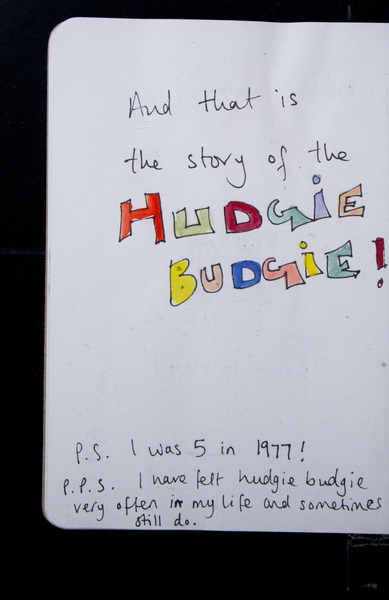 And that is
the story of the
HUDGiE
BUDGiE!
P.S. I was 5 in 1977!
P.P.S. I have felt hudgie budgie
very often in my life and sometimes
still do.